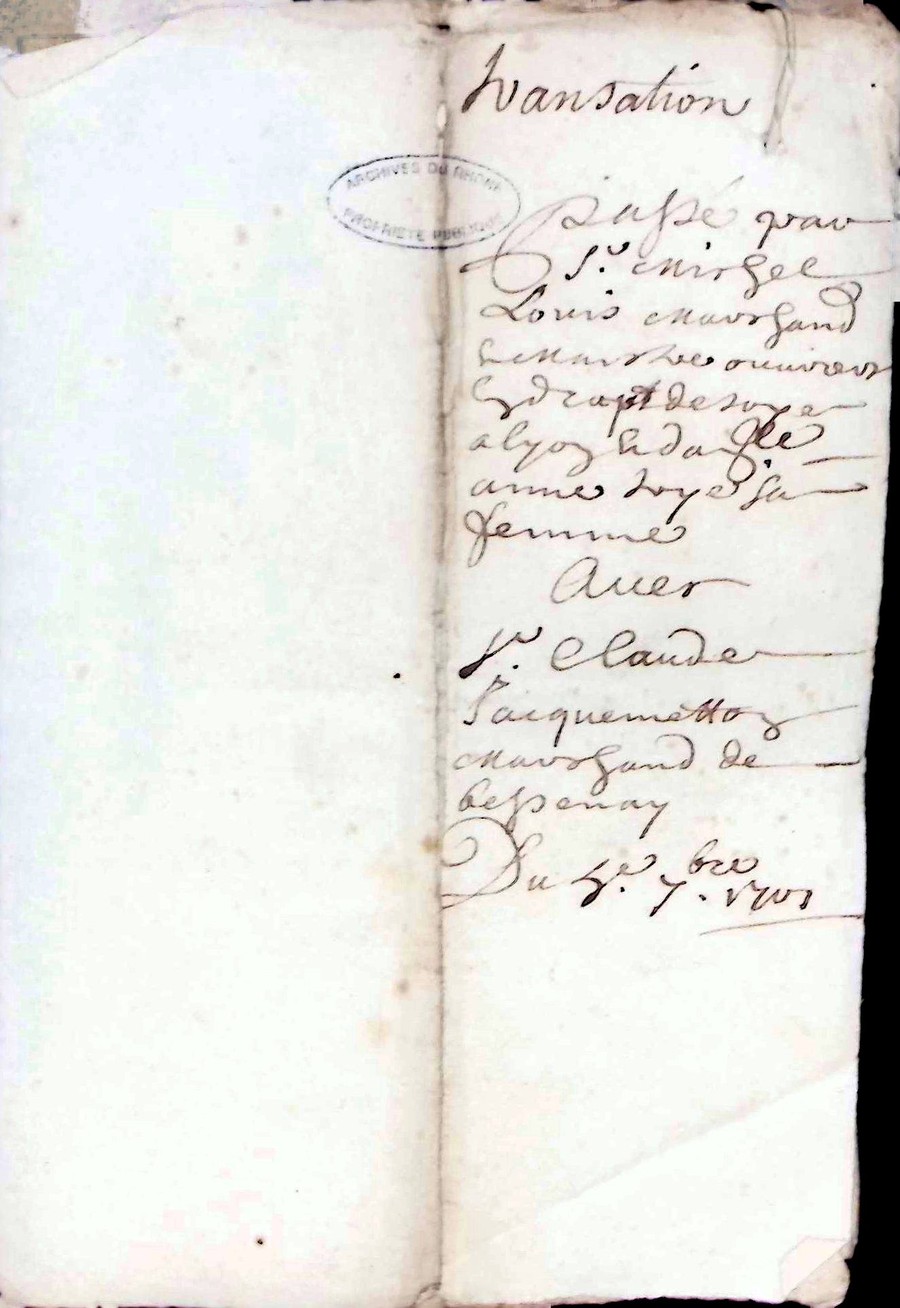 transation
ARCHIVES DU RHONE
PROPRIETE PUBLIQUE
passé par
Sr. Michel
Louis Marchand
& Maistre ouurier
En drapt de soye
a lyon & dalle
anne roye sa
femme
Auec
Sr. Claude
Jacquemetton
Marchand de
bessenay
Du 4e. 7.bre 1701